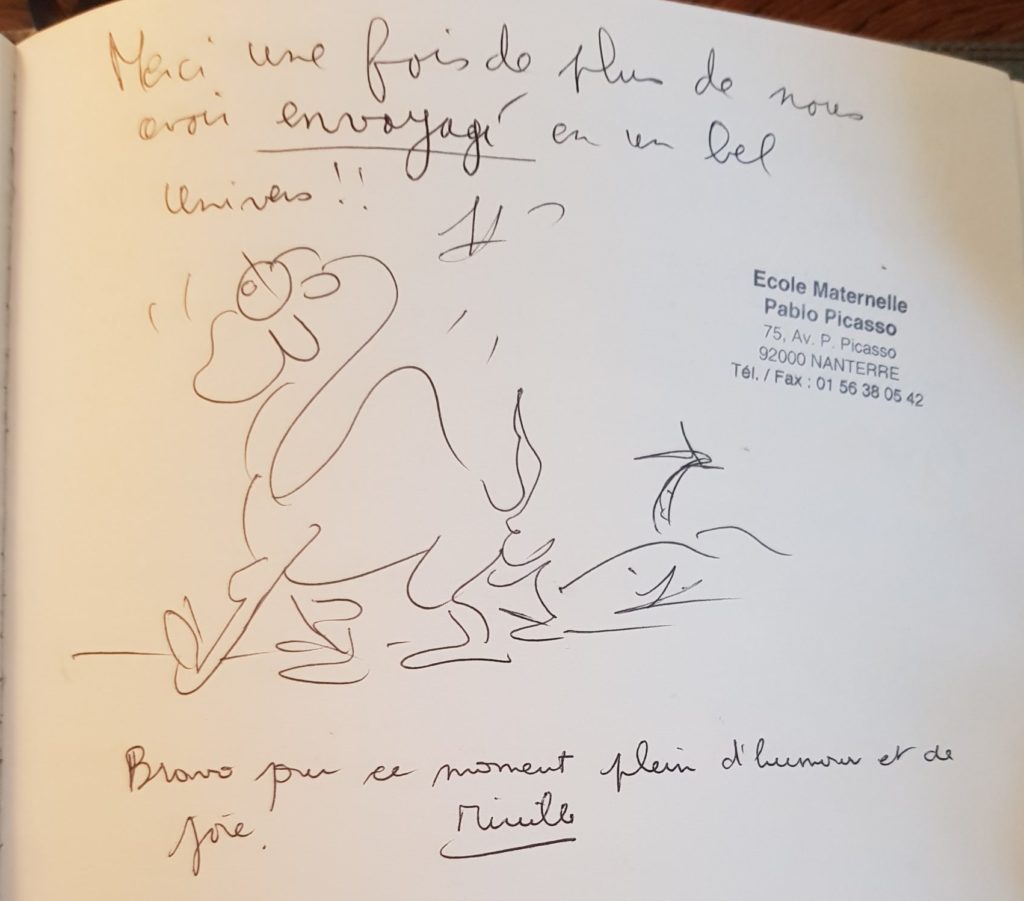 Merci une fois de plus de nous
avoir envoyagé en un bel
univers !!
Ecole Maternelle
Pablo Picasso
75, Av. P. Picasso
92000 NANTERRE
Tél. / Fax : 01 56 38 05 42
Bravo pour ce moment plein d'humour et de
joie.
Mireille